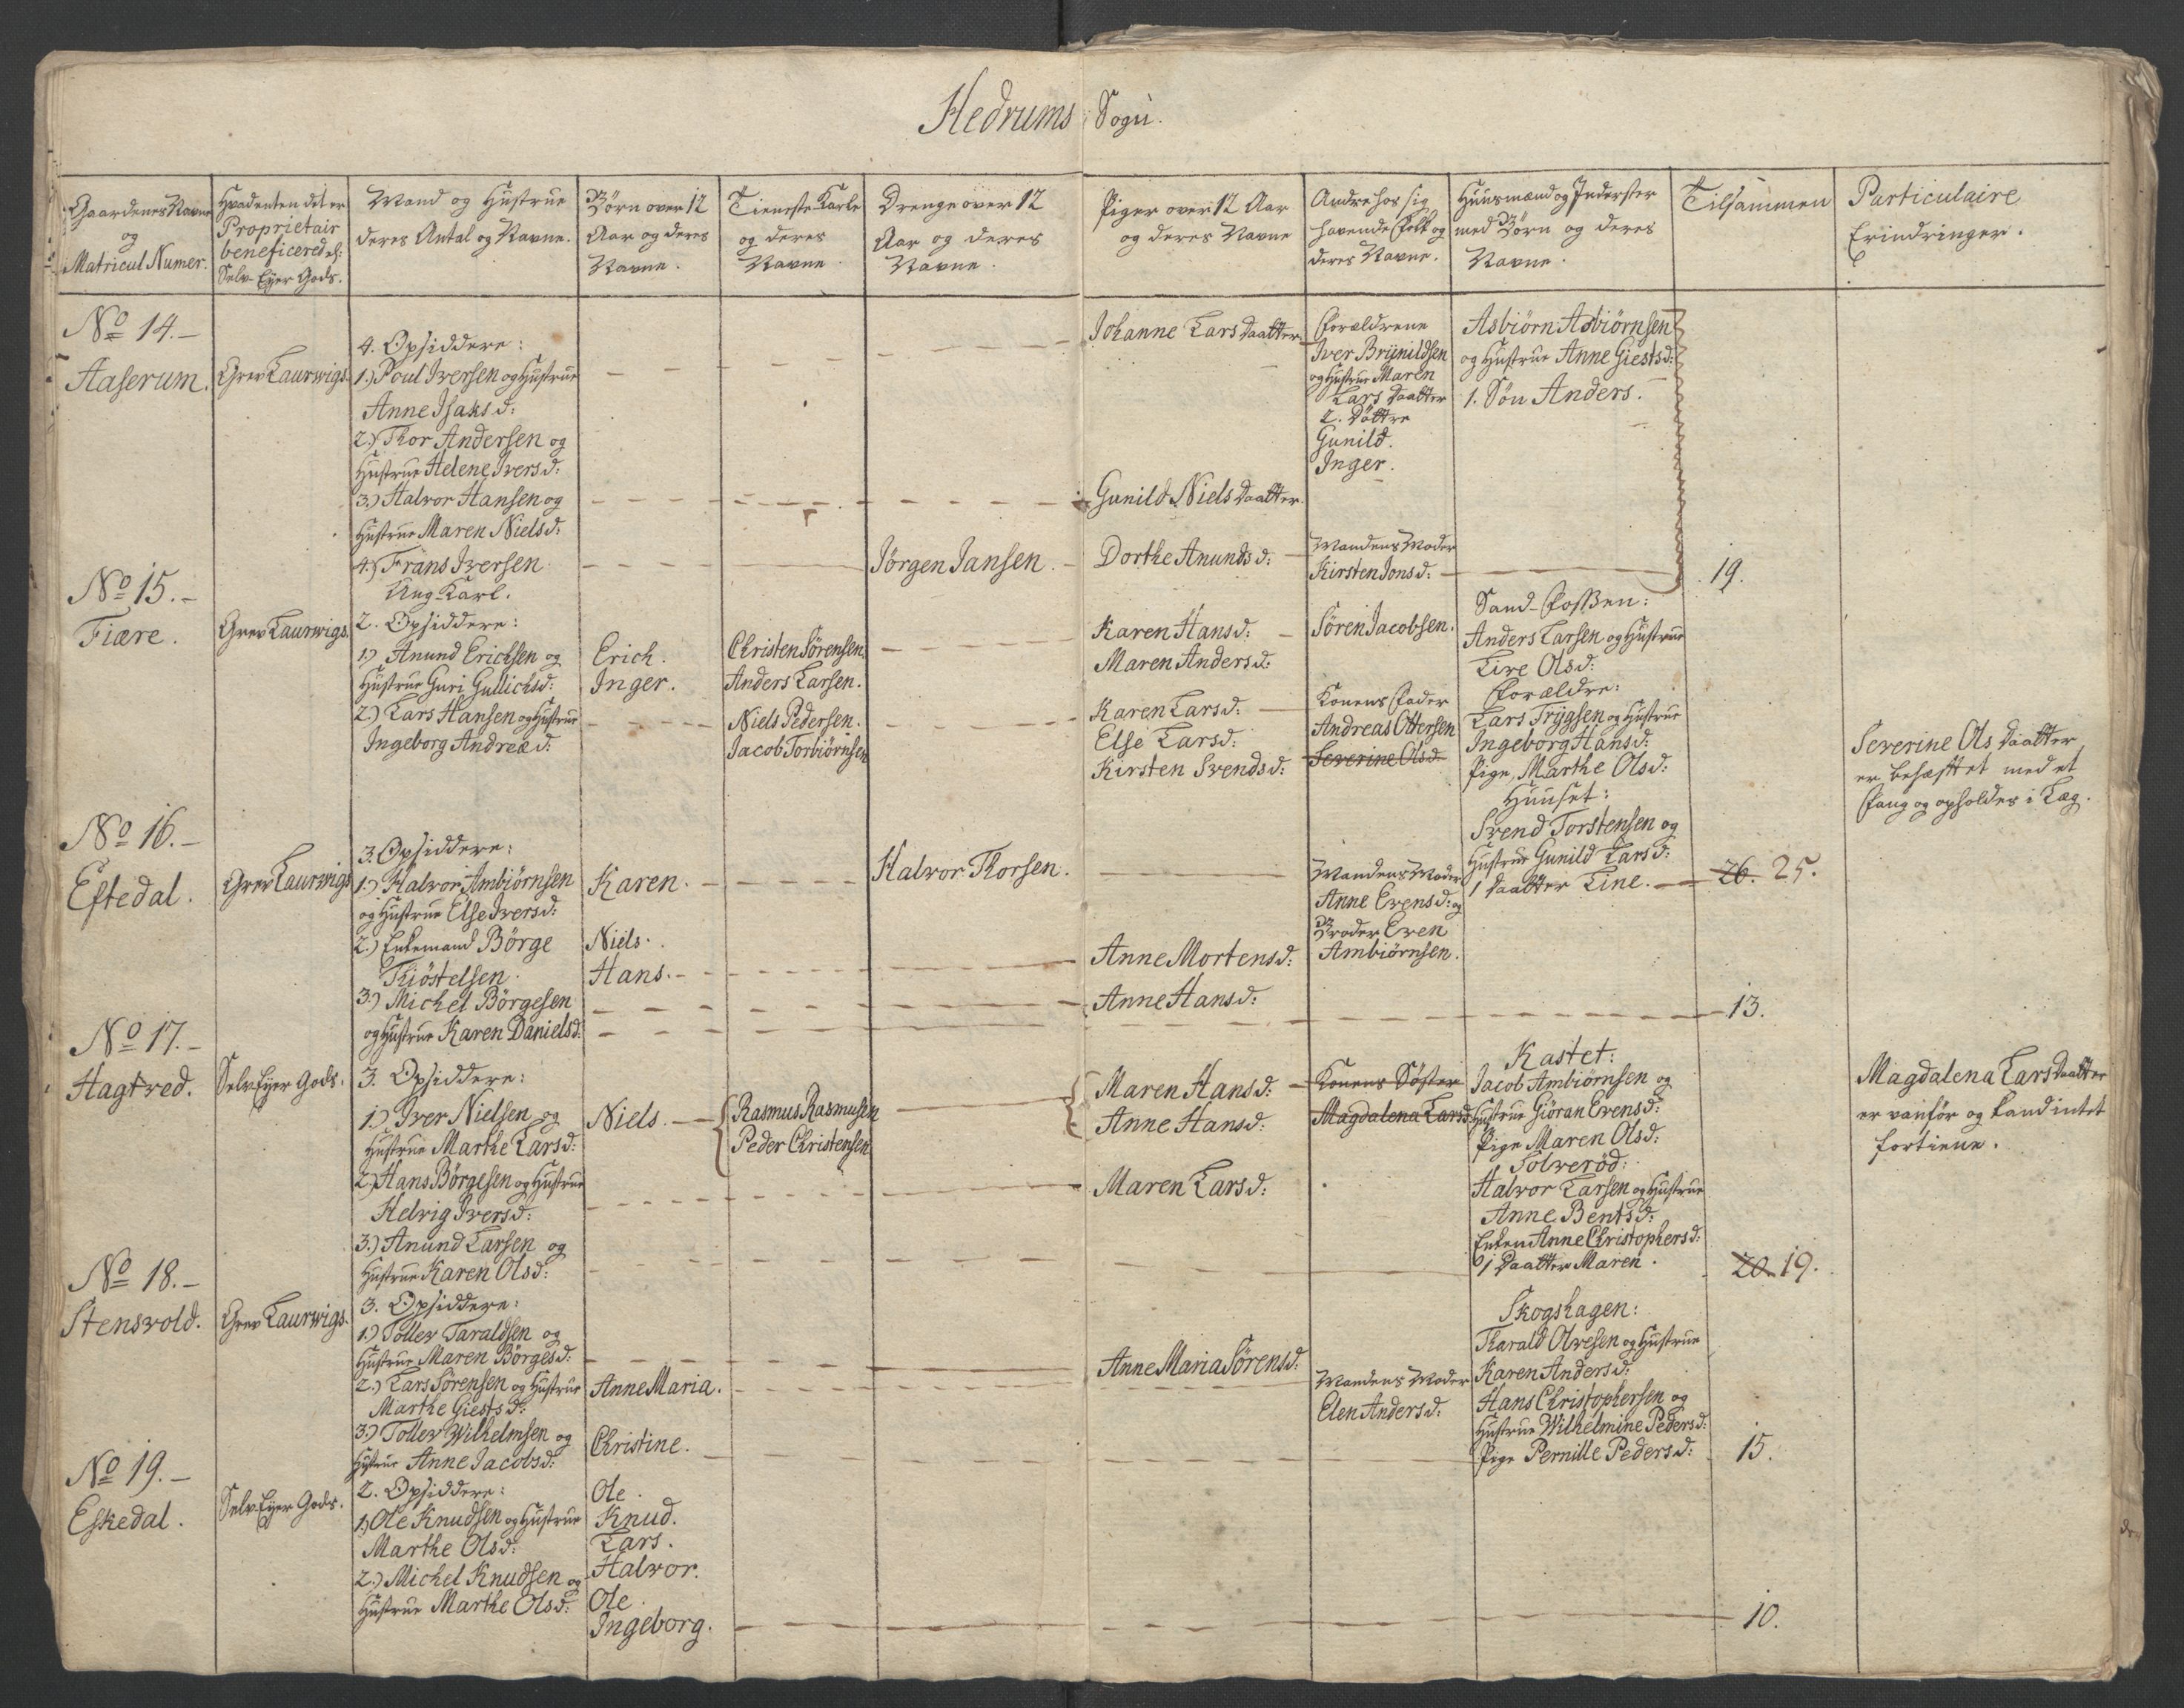 Hedrums Sogn.
Gaardenes Navne
og
Matricul Numer.
Hvadenten det er
Proprietair
beneficered el:
Selv-Eyer Gods.
Mand og Hustrue
deres Antal og Navne.
Børn over 12
Aar og deres
Navne.
Tieneste Karle
og deres
Navne.
Drenge over 12
Aar og deres
Navne.
Piger over 12 Aar
og deres Navne
Andre hos sig
havende Folk og
deres Navne.
Huusmænd og Inderster
med Børn og deres
Navne.
Tilsammen
Particulaire
Erindringer.
No 14.-
Aaserum.
Grev Laurwigs.
4. Opsiddere:
1.) Poul Iversen og Hustrue
Anne Isaks d:
2.) Thor Andersen og
Hustrue Helene Ivers d:
3.) Halvor Hansen og
Hustrue Maren Niels d:
4.) Frans Iversen
Ung-Karl.
Jørgen Jansen.
Johanne Lars Daatter.
Gunild Niels Daatter.
Dorthe Anunds d:
Forældrene
Iver Brynildsen
og Hustrue Maren
Lars Daatter
2. Døttre
Gunild.
Inger.
Mandens Moder
Kirsten Jons d:
Asbiørn Asbiørnsen
og Hustrue Anne Giests d:
1. Søn Anders.
19.
No 15.-
Fiære.
Grev Laurwigs.
2. Opsiddere:
1.) Anund Erichsen og
Hustrue Guri Gullichs d:
2.) Lars Hansen og Hustrue
Ingeborg Andreæ d:
Erich.
Inger.
Christen Sørensen.
Anders Larsen.
Niels Pedersen.
Jacob Torbiørnsen
Karen Hans d:
Maren Anders d:
Karen Lars d:
Else Lars d:
Kirsten Svends d:
Søren Jacobsen.
Konens Fader
Andreas Ottersen
Severine Ols d:
Sand-Fossen:
Anders Larsen og Hustrue
Live Ols d:
Forældre:
Lars Trygsen og Hustrue
Ingeborg Hans d:
Pige, Marthe Ols d:
Huuset:
Svend Torstensen og
Hustrue Gunild Lars d:
1 Daatter Line.
26. 25.
Severine Ols Daatter
er behæftet med et
Fang og opholdes i Læg.
No 16.-
Eftedal.
Grev Laurwigs
3. Opsiddere:
1.) Halvor Ambiørnsen
og Hustrue Else Ivers d:
2.) Enkemand Børge
Kiøstelsen.
3.) Michel Børgesen
og Hustrue Karen Daniels d:
Karen.
Niels.
Hans.
Halvor Thorsen.
Anne Mortens d:
Anne Hans d:
Mandens Moder
Anne Evens d: og
Broder Even
Ambiørnsen.
13.
No 17.-
Hagtved.
Selv-Eyer Gods.
3. Opsiddere:
1.) Iver Nielsen og
Hustrue Marthe Lars d:
2.) Hans Børgesen og Hustrue
Helvig Ivers d:
3.) Anund Larsen og
Hustrue Karen Ols d:
Niels.
Rasmus Rasmusen
Peder Christensen
Maren Hans d:
Anne Hans d:
Maren Lars d:
Konens Søster
Magdalena Lars d:
Kastet:
Jacob Ambiørnsen og
Hustrue Giøran Evens d:
Pige Maren Ols d:
Solverød:
Halvor Larsen og Hustrue
Anne Bents d:
Enken Anne Christophers d:
1 Daatter Maren.
20. 19.
Magdalena Lars Daatter
er vanfør og kand intet
fortiene.
No 18.-
Stensvold.
Grev Laurwigs.
3. Opsiddere:
1.) Tollev Taraldsen og
Hustrue Maren Børges d:
2.) Lars Sørensen og Hustrue
Marthe Giests d:
3.) Tollev Wilhelmsen og
Hustrue Anne Jacobs d:
Anne Maria.
Christine.
Anne Maria Sørens d:
Mandens Moder
Elen Anders d:
Skogshagen:
Tharald Olvesen og Hustrue
Karen Anders d:
Hans Christophersen og
Hustrue Wilhelmine Peders d:
Pige Pernille Peders d:
15.
No 19.-
Eskedal.
Selv-Eyer Gods.
2. Opsiddere:
1.) Ole Knudsen og Hustrue
Marthe Ols d:
2.) Michel Knudsen og
Hustrue Marthe Ols d:
Ole.
Knud.
Lars.
Halvor.
Ole.
Ingeborg.
10.